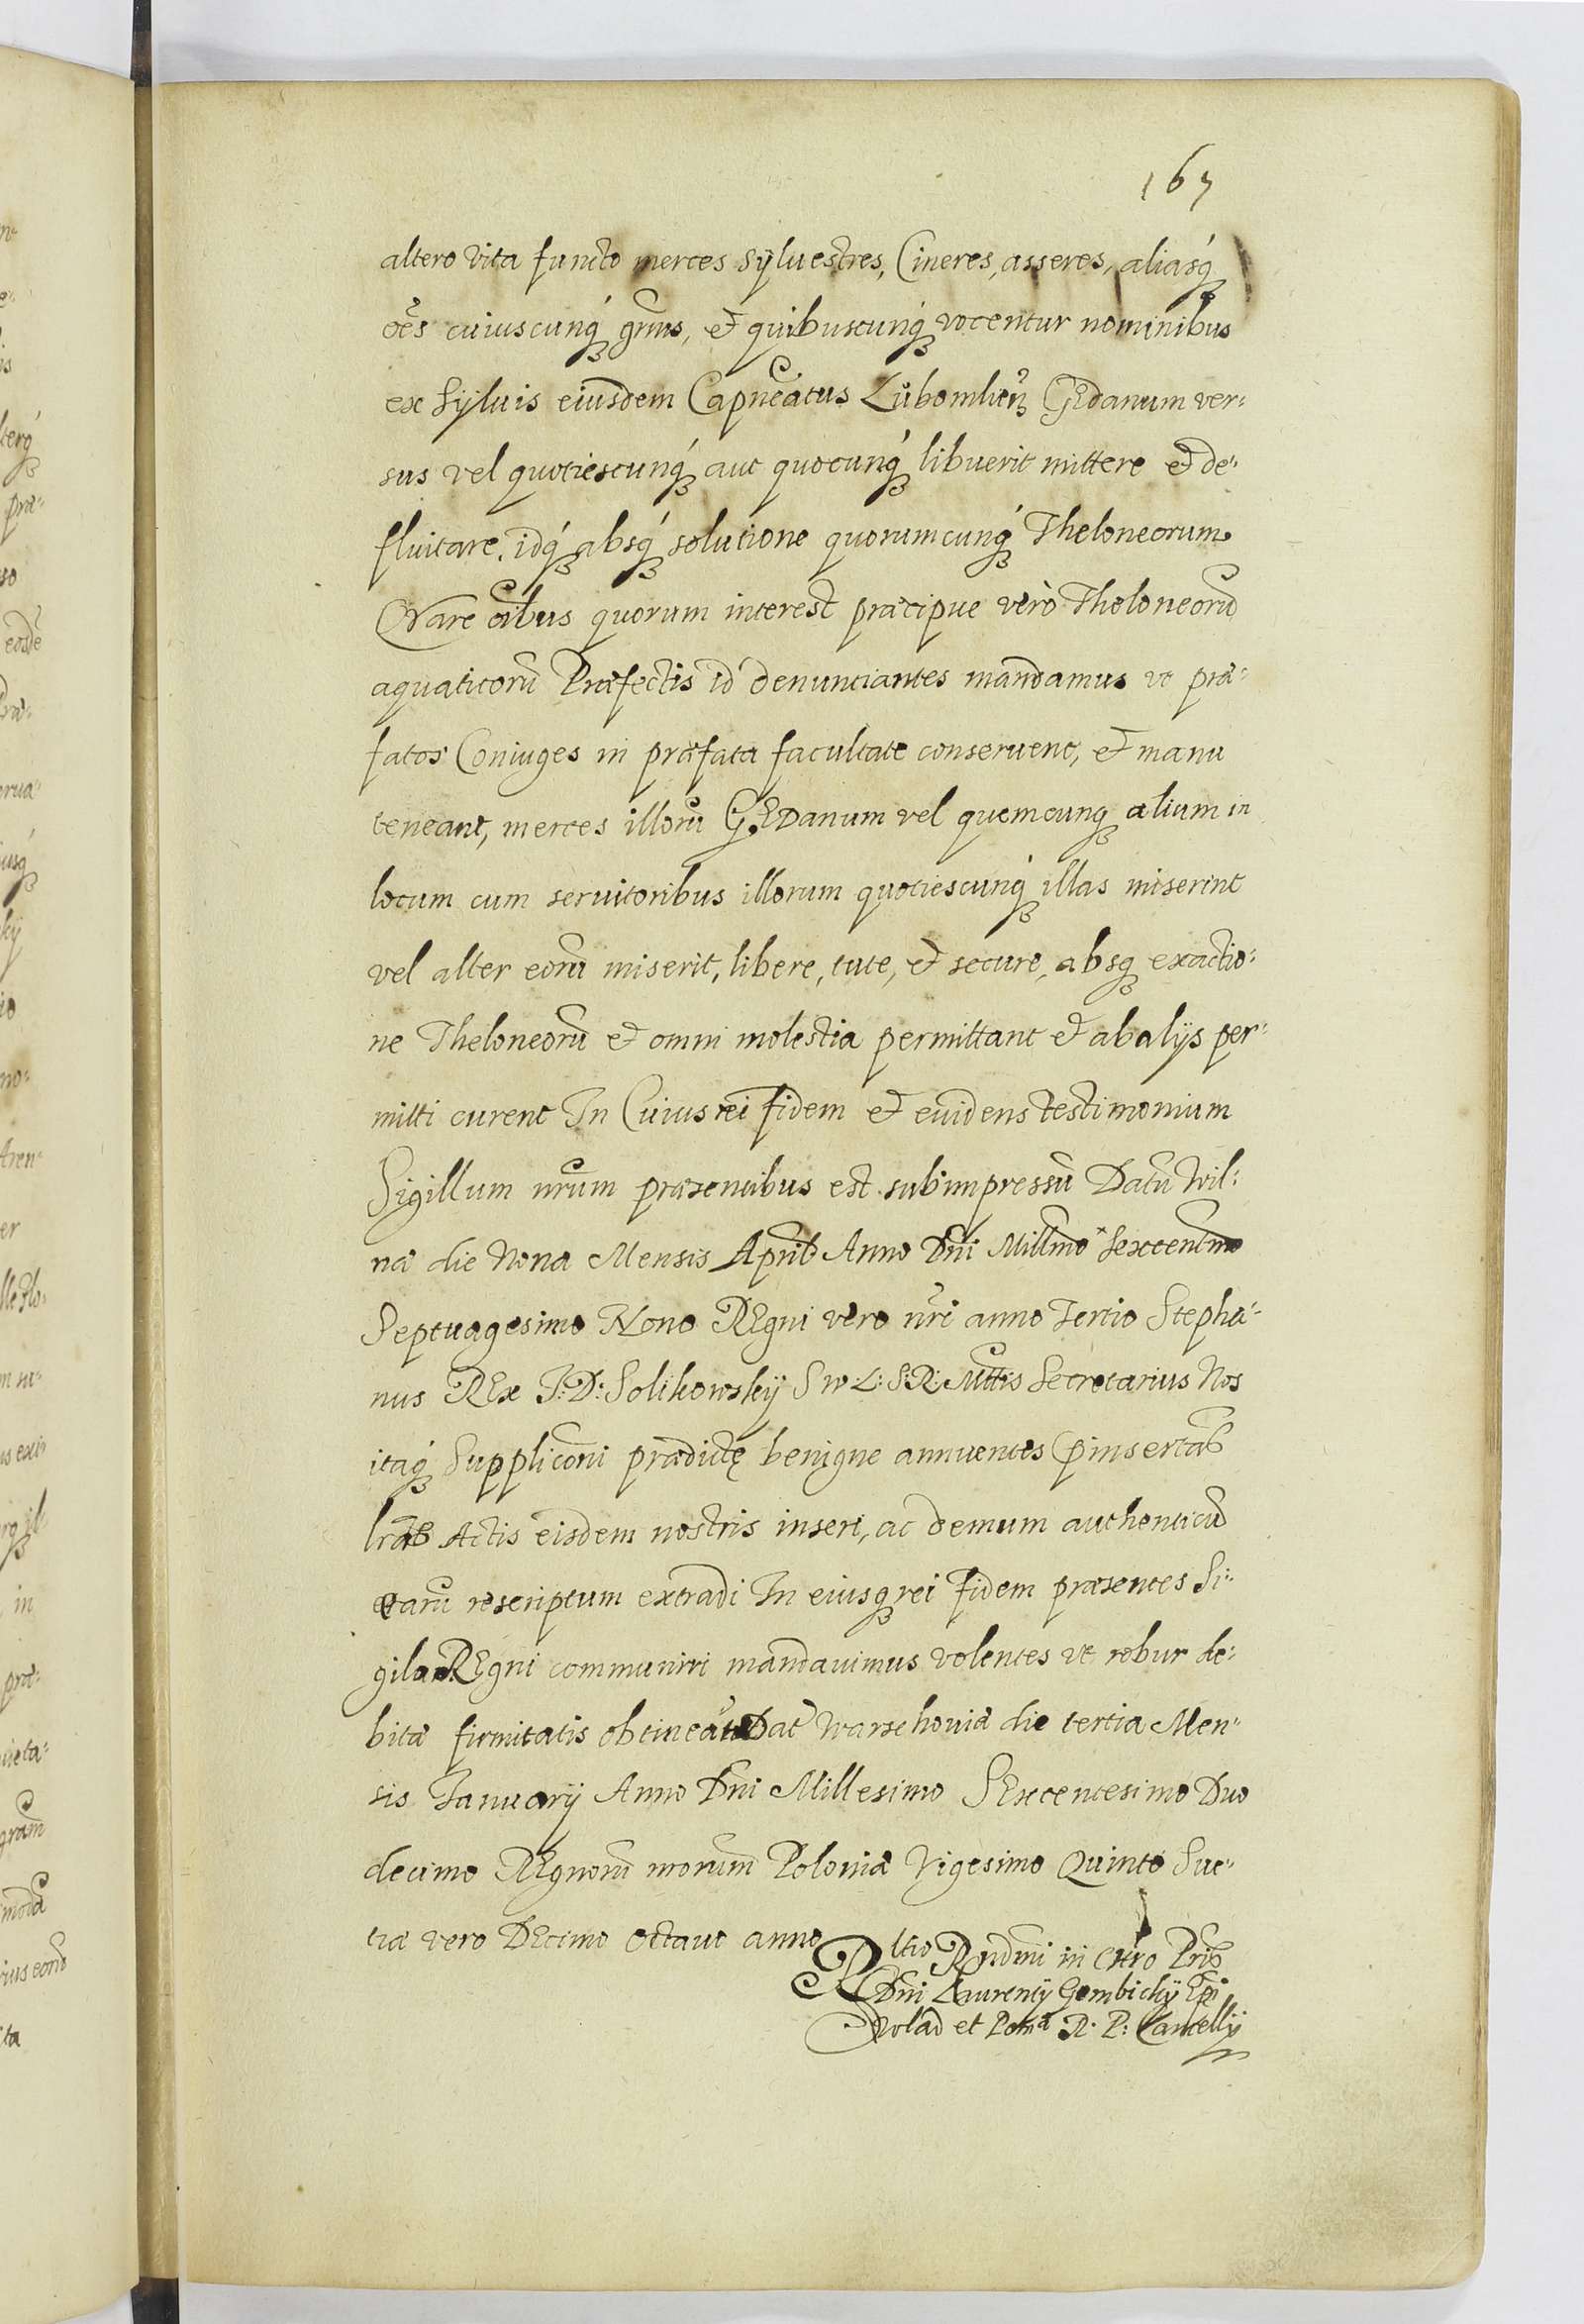 167
altero vita functo merces Sÿluestres, Cineres, asseres, aliasq́
oẽs cuiuscunq́ gñris, et quibuscunq́ vocentur nominibus
ex Sÿluis eiusdem Capneatus Lubomlien̄ GEdanum ver:
sus vel quotiescunq́ aut quocunq́ libuerit mittere et de:
fluitare, idq́ absq́ solutione quorumcunq́ Theloneorum
Quare oĩbus quorum interest præcipue verò Theloneorũ
aquaticorũ Præfectis id denunciantes mandamus vt præ:
fatos Coniuges in præfata facultate conseruent, et manu
teneant, merces illorũ GEDanum vel quemcunq alium in
locum cum seruitoribus illorum quotiescunq́ illas miserint
vel alter eorũ miserit, libere, tute, et secure, absq exactio:
ne Theloneorũ et omni molestia permittant et ab alijs per:
mitti curent In Cuius rei fidem et euidens testimonium
Sigillum nr̃um præsentibus est subimpressũ Datũ Wil:
næ die Nona Mensis April̃ Anno Dñi Mill̃mo Sexcent̃mo
Septuagesimo Nono REgni vero nr̃i anno Tertio Stepha:
nus REx J: D: Solikowskÿ S W: L: S: R: Mttis Secretarius Nos
itaq́ Supplicõni prædictę benigne annuentes p̃insertas
lrãs Actis eisdem nostris inseri, ac demum authenticũ
earũ rescriptum extradi In eiusq rei fidem præsentes Si:
gillo REgni communiri mandauimus volentes vt robur de:
bitæ firmitatis obtineãt Dat̃ Warschouiæ die tertia Men:
sis Januarÿ Anno Dñi Millesimo SExcentesimo Duo
decimo REgnorũ nrorum̃ Poloniæ Vigesimo Quinto Sue:
tiæ vero DEcimo octauo anno
Rltio Rndmi in Chr̃o Pris
Dñi Laurentÿ Gembickÿ Epi
Wlad et Pomæ R. P: Cancellÿ